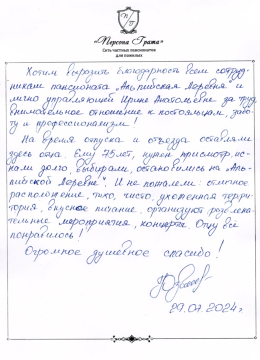 «Перспектива»
Сеть частных пансионатов
для пожилых
Хотим выразить благодарность всем сотруд-
никам пансионата "Альпийская Деревня" и
лично управляющей Ирине Анатольевне за труд,
внимательное отношение к постояльцам, забо-
ту и профессионализм!
На время отпуска и отъезда оставляли
здесь отца. Ему 75 лет, нужен присмотр, ис-
кали долго, выбирали, остановились на "Аль-
пийской Деревне". И не пожалели: отличное
расположение, тихо, чисто, ухоженная терри-
тория, вкусное питание, организуют развлека-
тельные мероприятия, концерты. Отцу всё
понравилось!
Огромное душевное спасибо!
29.07.2024г.